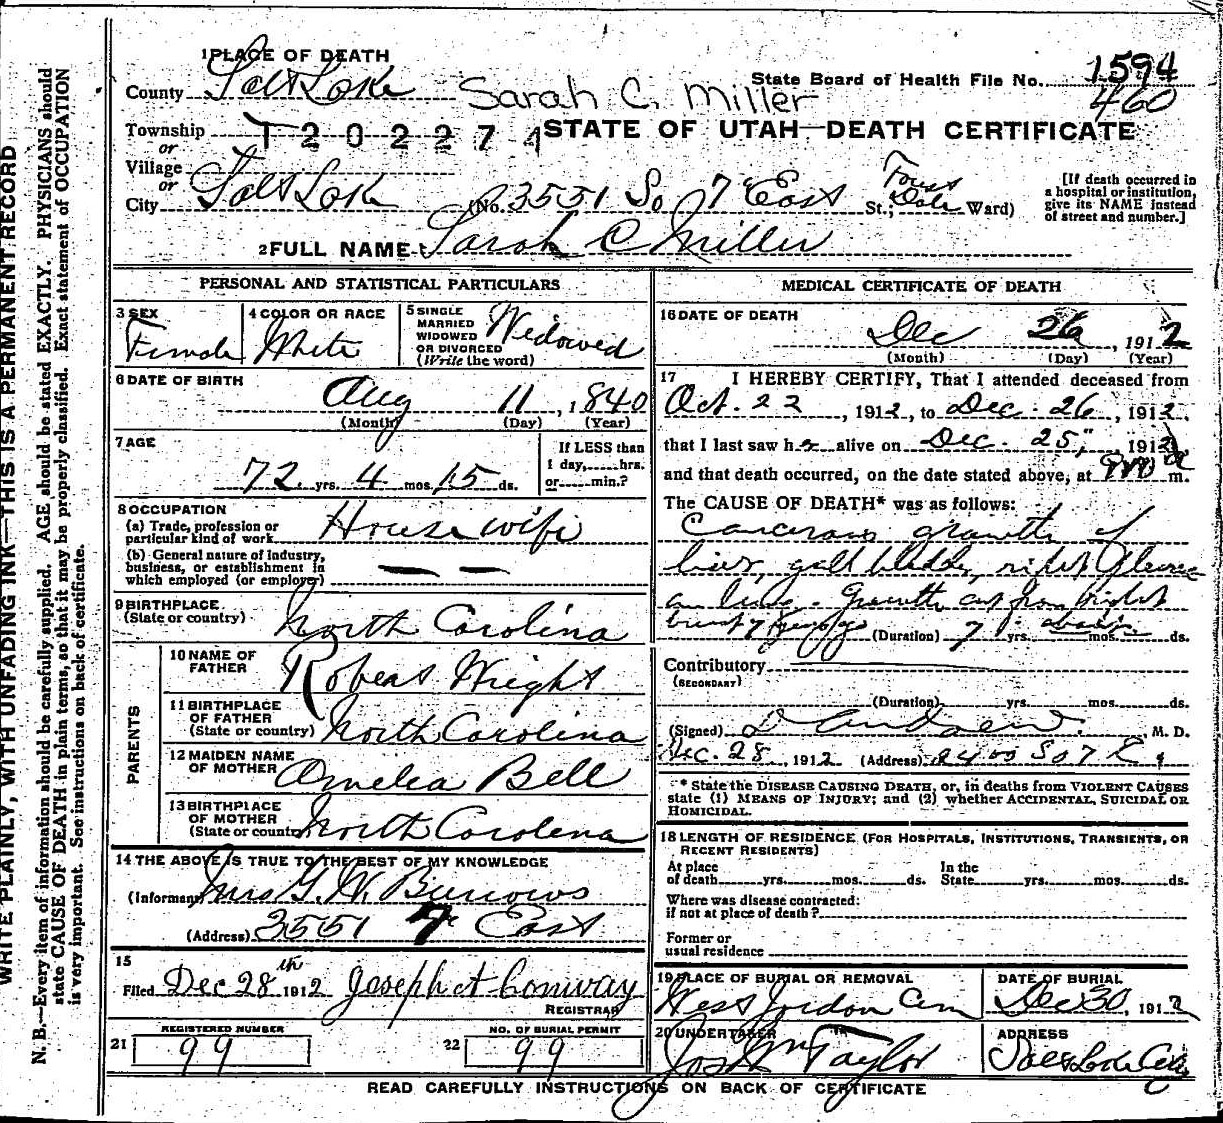 WRITE PLAINLY, WITH UNFADING INK—THIS IS A PERMANENT RECORD
N. B.—Every item of information should be carefully supplied. AGE should be stated EXACTLY. PHYSICIANS should
state CAUSE OF DEATH in plain terms, so that it may be properly classified. Exact statement of OCCUPATION
is very important. See instructions on back of certificate.
1 PLACE OF DEATH
County Salt Lake Sarah C. Miller State Board of Health File No. 1594
460
Township T 20227 4 STATE OF UTAH—DEATH CERTIFICATE
or
Village
or
City Salt Lake (No. 3551 So 7 East St.; Ward)
[If death occurred in
a hospital or institution,
give its NAME instead
of street and number.]
2 FULL NAME Sarah C Miller
PERSONAL AND STATISTICAL PARTICULARS
3 SEX
Female
4 COLOR OR RACE
White
5 SINGLE
MARRIED
WIDOWED
OR DIVORCED
(Write the word)
Widowed
6 DATE OF BIRTH
Aug 11, 1840
(Month) (Day) (Year)
7 AGE
72 yrs. 4 mos. 15 ds.
If LESS than
1 day, hrs.
or min.?
8 OCCUPATION
(a) Trade, profession or
particular kind of work House wife
(b) General nature of industry,
business, or establishment in
which employed (or employer) — —
9 BIRTHPLACE
(State or country) North Carolina
PARENTS
10 NAME OF
FATHER Robert Wright
11 BIRTHPLACE
OF FATHER
(State or country) North Carolina
12 MAIDEN NAME
OF MOTHER Amelia Bell
13 BIRTHPLACE
OF MOTHER
(State or country) North Carolina
14 THE ABOVE IS TRUE TO THE BEST OF MY KNOWLEDGE
(Informant) Mrs G. W. Burrows
(Address) 3551 7 East
15
Filed Dec 28th 1912 Joseph A Conway
REGISTRAR
REGISTERED NUMBER
21 99
NO. OF BURIAL PERMIT
22 99
MEDICAL CERTIFICATE OF DEATH
16 DATE OF DEATH
Dec 26, 1912
(Month) (Day) (Year)
17 I HEREBY CERTIFY, That I attended deceased from
Oct. 22, 1912, to Dec. 26, 1912,
that I last saw her alive on Dec. 25, 1912
and that death occurred, on the date stated above, at m.
The CAUSE OF DEATH* was as follows:
Cancerous growth of
liver, gall bladder, right pleura
an lung. Growth cut from right
breast 7 years ago (Duration) 7 yrs. mos. ds.
Contributory
(SECONDARY)
(Duration) yrs. mos. ds.
(Signed) M. D.
Dec. 28, 1912 (Address) 2400 So 7 E.
* State the DISEASE CAUSING DEATH, or, in deaths from VIOLENT CAUSES
state (1) MEANS OF INJURY; and (2) whether ACCIDENTAL, SUICIDAL OR
HOMICIDAL.
18 LENGTH OF RESIDENCE (FOR HOSPITALS, INSTITUTIONS, TRANSIENTS, OR
RECENT RESIDENTS)
At place
of death yrs. mos. ds.
In the
State yrs. mos. ds.
Where was disease contracted:
if not at place of death?
Former or
usual residence
19 PLACE OF BURIAL OR REMOVAL
West Jordan Cem
DATE OF BURIAL
Dec 30, 1912
20 UNDERTAKER
Jos Wm Taylor
ADDRESS
Salt Lake City
READ CAREFULLY INSTRUCTIONS ON BACK OF CERTIFICATE